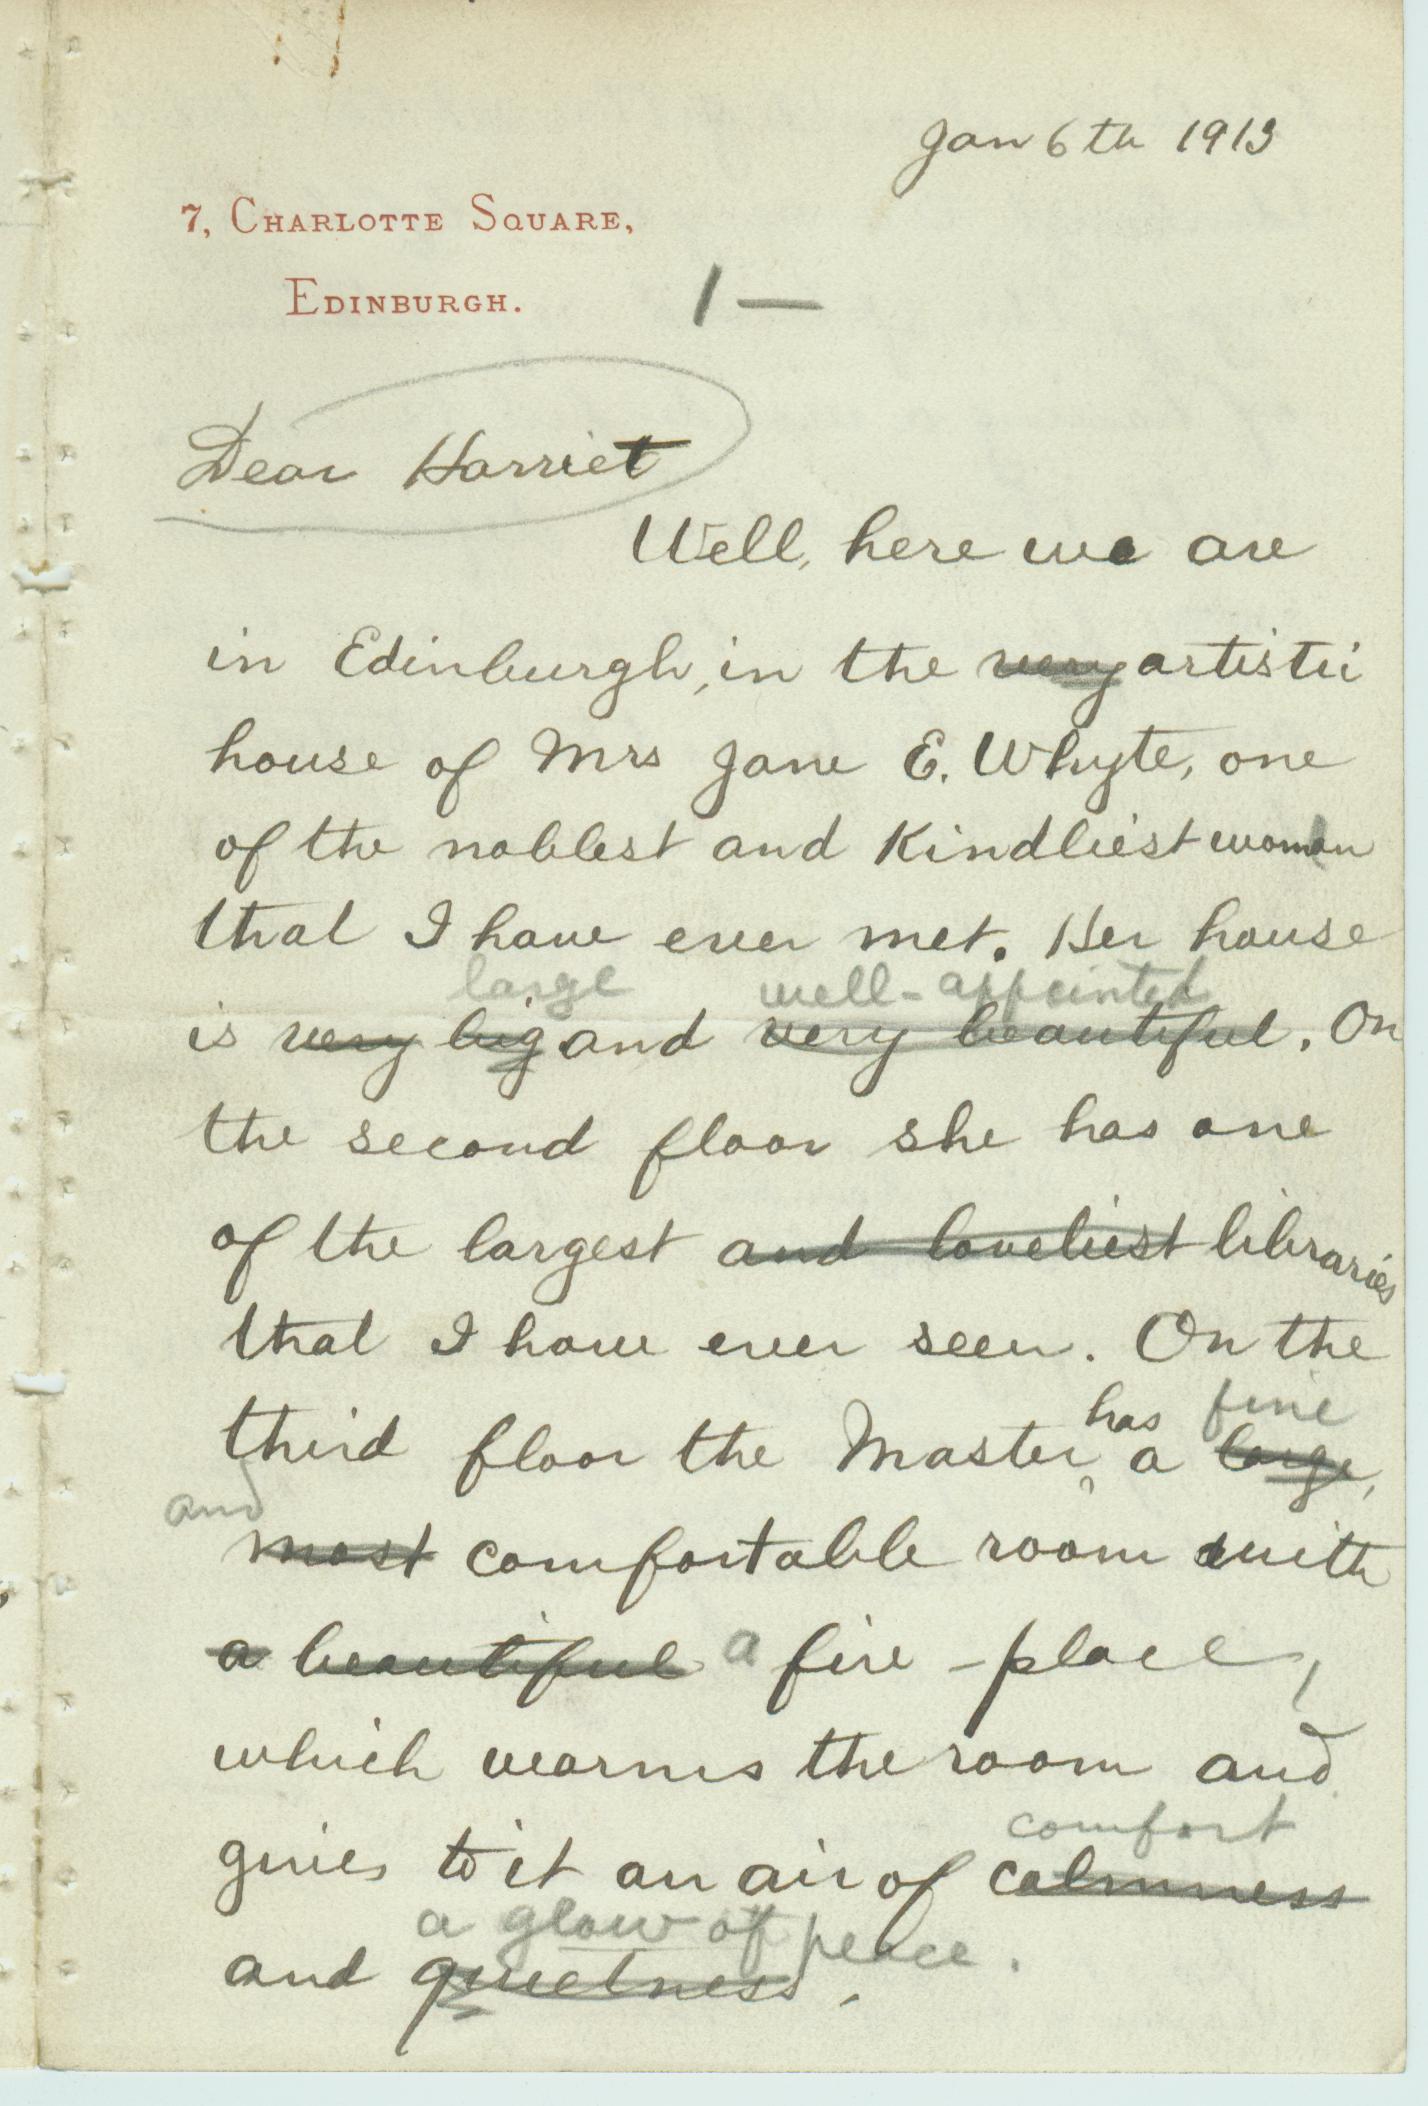 Jan 6th 1913
7, Charlotte Square,
Edinburgh.
1 —
Dear Harriet
Well, here we are
in Edinburgh, in the very artistic
house of Mrs Jane E. Whyte, one
of the noblest and Kindliest woman
that I have ever met. Her house
large well-appointed
is very big and very beautiful. On
the second floor she has one
of the largest and loveliest libraries
that I have ever seen. On the
has fine
third floor the Master a large,
and
most comfortable room with
a beautiful a fire-place,
which warms the room and
comfort
gives to it an air of calmness
a glow of peace.
and quietness.